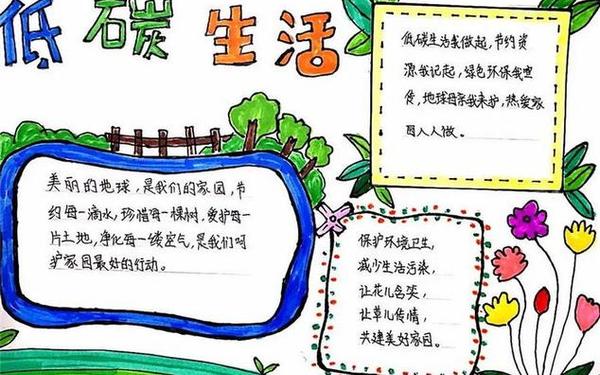 低碳生活
低碳生活我做起,节约资
源我记起,绿色环保我宣
传,地球母亲我来护,热爱家
园人人做。
美丽的地球,是我们的家园,节
约每一滴水,珍惜每一棵树,爱护每一
片土地,净化每一缕空气,是我们呵
护家园最好的行动。
保护环境卫生,
减少生活污染,
让花儿含笑,
让草儿传情,
共建美好家园。